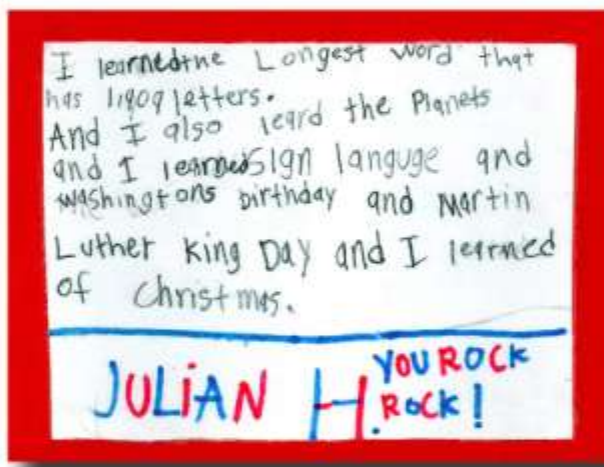 I learnedthe Longest word that
has 1,909 letters.
And I also leard the Planets
and I learnedsign languge and
washingtons birthday and Martin
Luther King Day and I learned
of Christmas.
JULiAN H. YOU ROCK
ROCK!